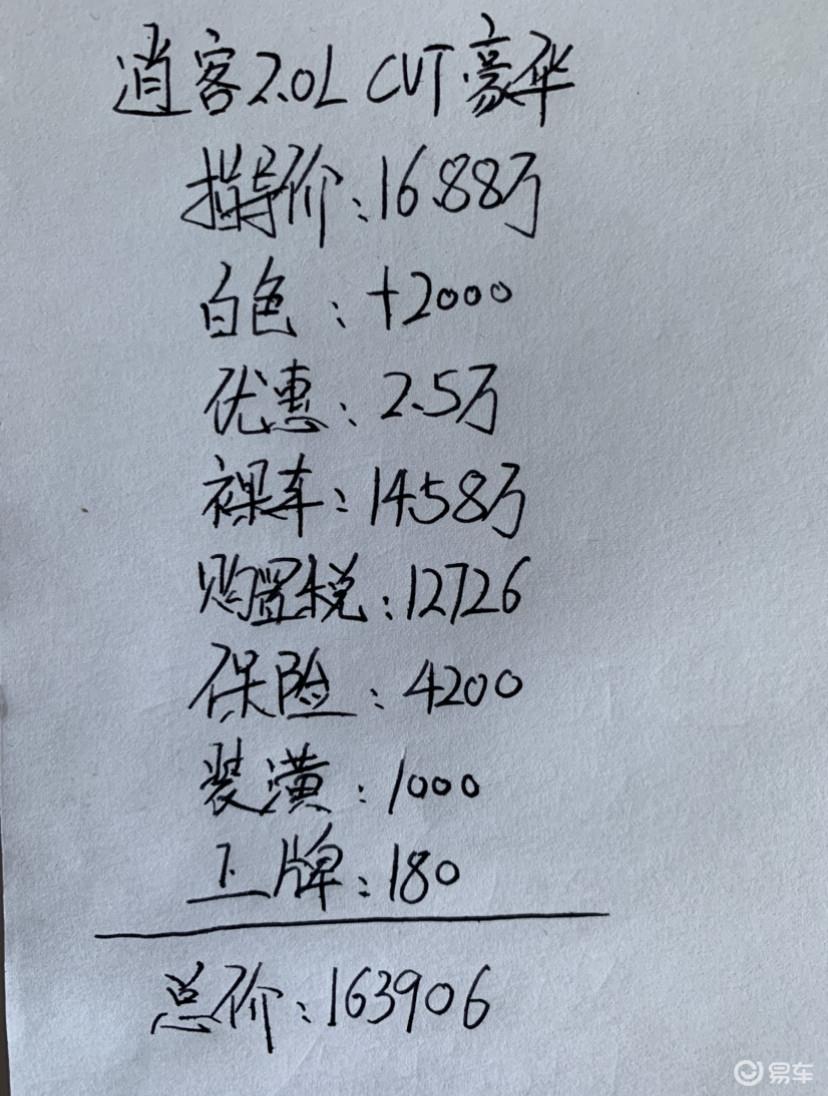 逍客2.0L CVT豪华
指导价:16.88万
白色:+2000
优惠:2.5万
裸车:14.58万
购置税:12726
保险:4200
装潢:1000
上牌:180
总价:163906
易车